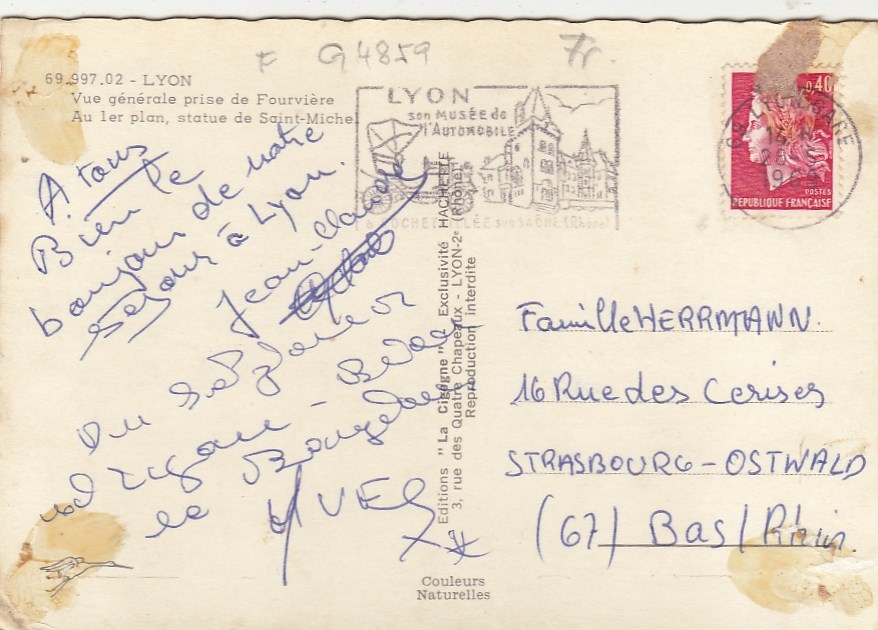 F G4859 7r
69.997.02 - LYON
Vue générale prise de Fourvière
Au 1er plan, statue de Saint-Michel
LYON
son MUSÉE de
l'AUTOMOBILE
à ROCHETAILLÉE sur SAÔNE (Rhône)
69 LYON-GARE
0,40
POSTES
RÉPUBLIQUE FRANÇAISE
A tous
Bien le
bonjour de notre
séjour à Lyon.
Jean-Claude
Du
YVES
Editions "La Cigogne" - Exclusivité HACHETTE
3, rue des Quatre Chapeaux - LYON-2e (Rhône)
Reproduction interdite
Famille HERRMANN.
16 Rue des Cerises
STRASBOURG-OSTWALD
(67) Bas/Rhin.
Couleurs
Naturelles